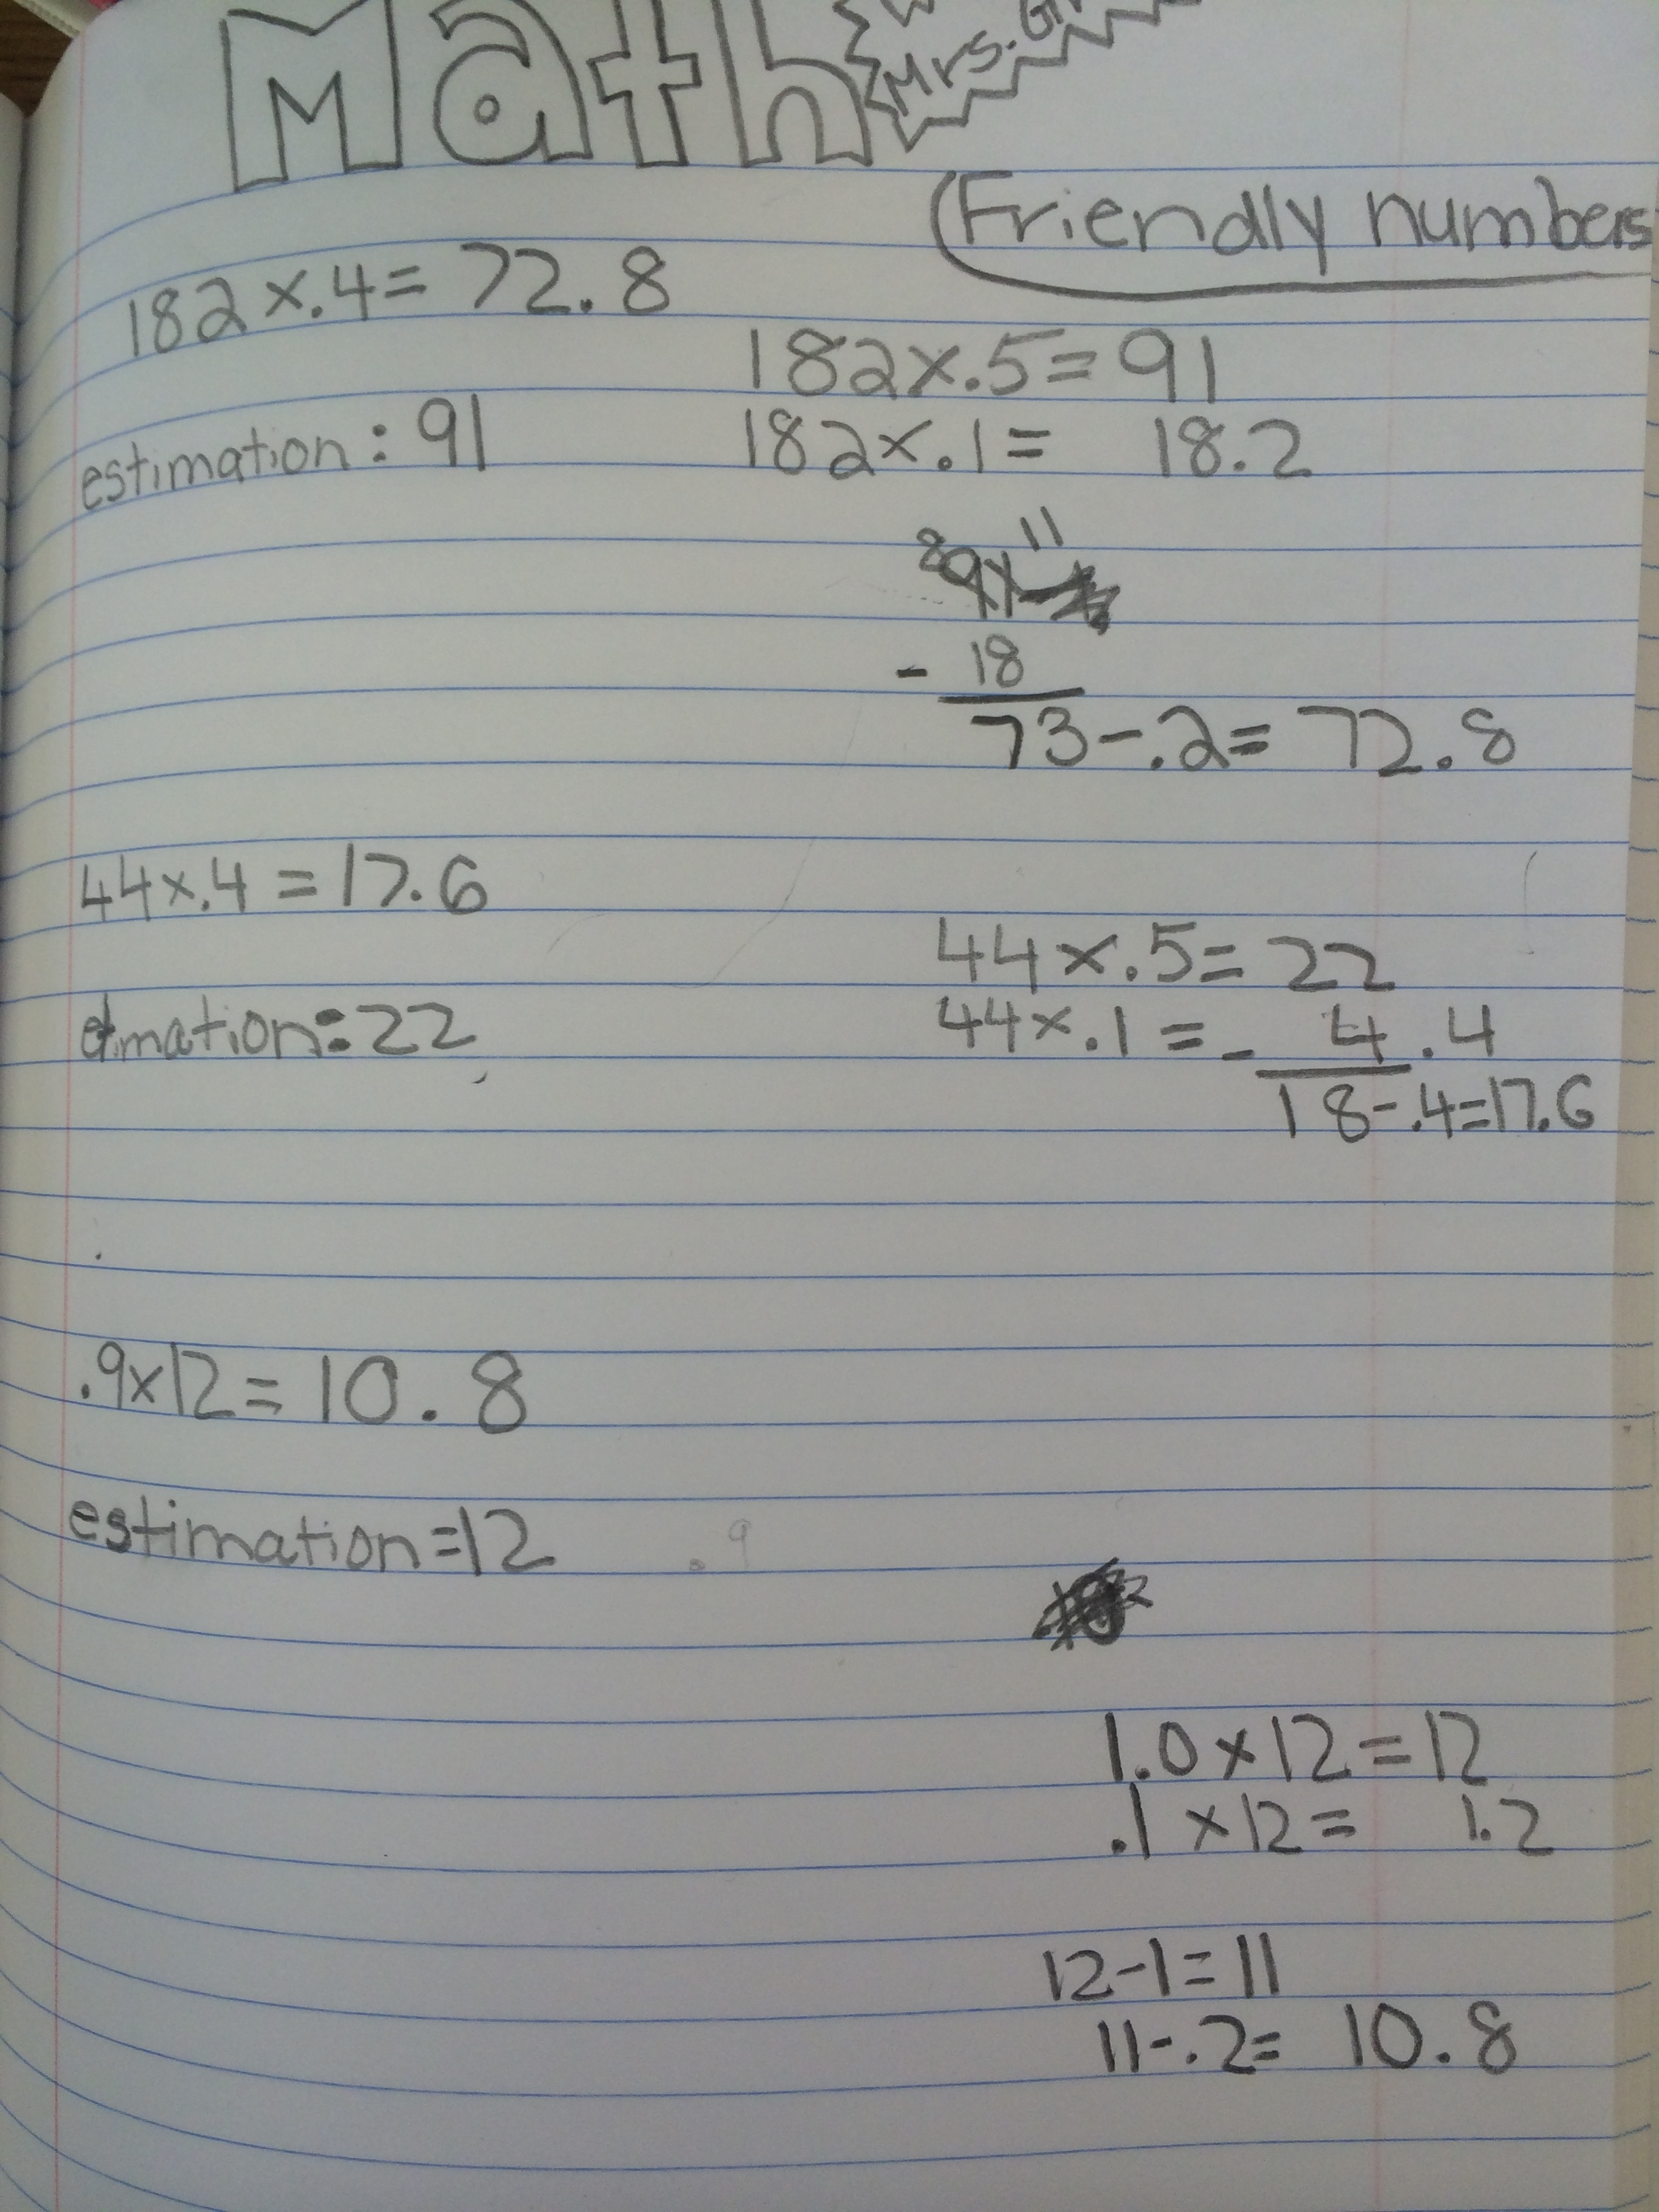 Math
Mrs. G
(Friendly numbers
182 x .4 = 72.8
182 x .5 = 91
estimation: 91
182 x .1 = 18.2
8 11
91
- 18
73 - .2 = 72.8
44 x .4 = 17.6
44 x .5 = 22
etimation: 22
44 x .1 = - 4.4
18 - .4 = 17.6
.9 x 12 = 10.8
estimation = 12
.9
1.0 x 12 = 12
.1 x 12 = 1.2
12 - 1 = 11
11 - .2 = 10.8